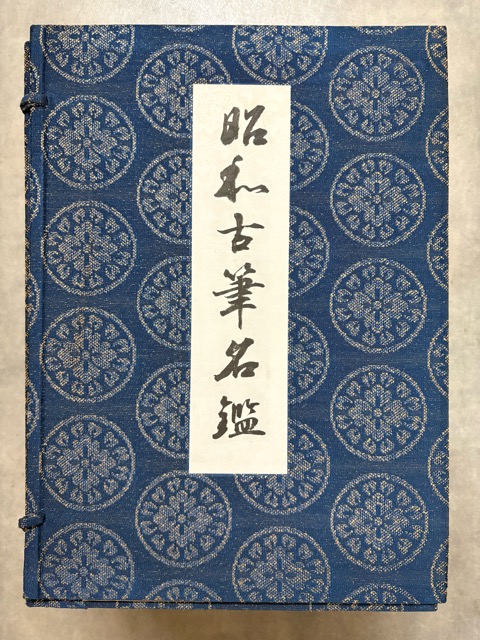 昭和古筆名鑑